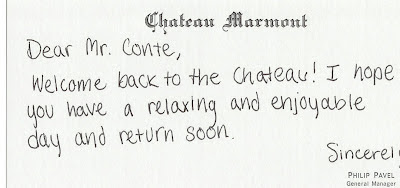 Chateau Marmont
Dear Mr. Conte,
Welcome back to the Chateau! I hope
you have a relaxing and enjoyable
day and return soon.
Sincerely
PHILIP PAVEL
General Manager